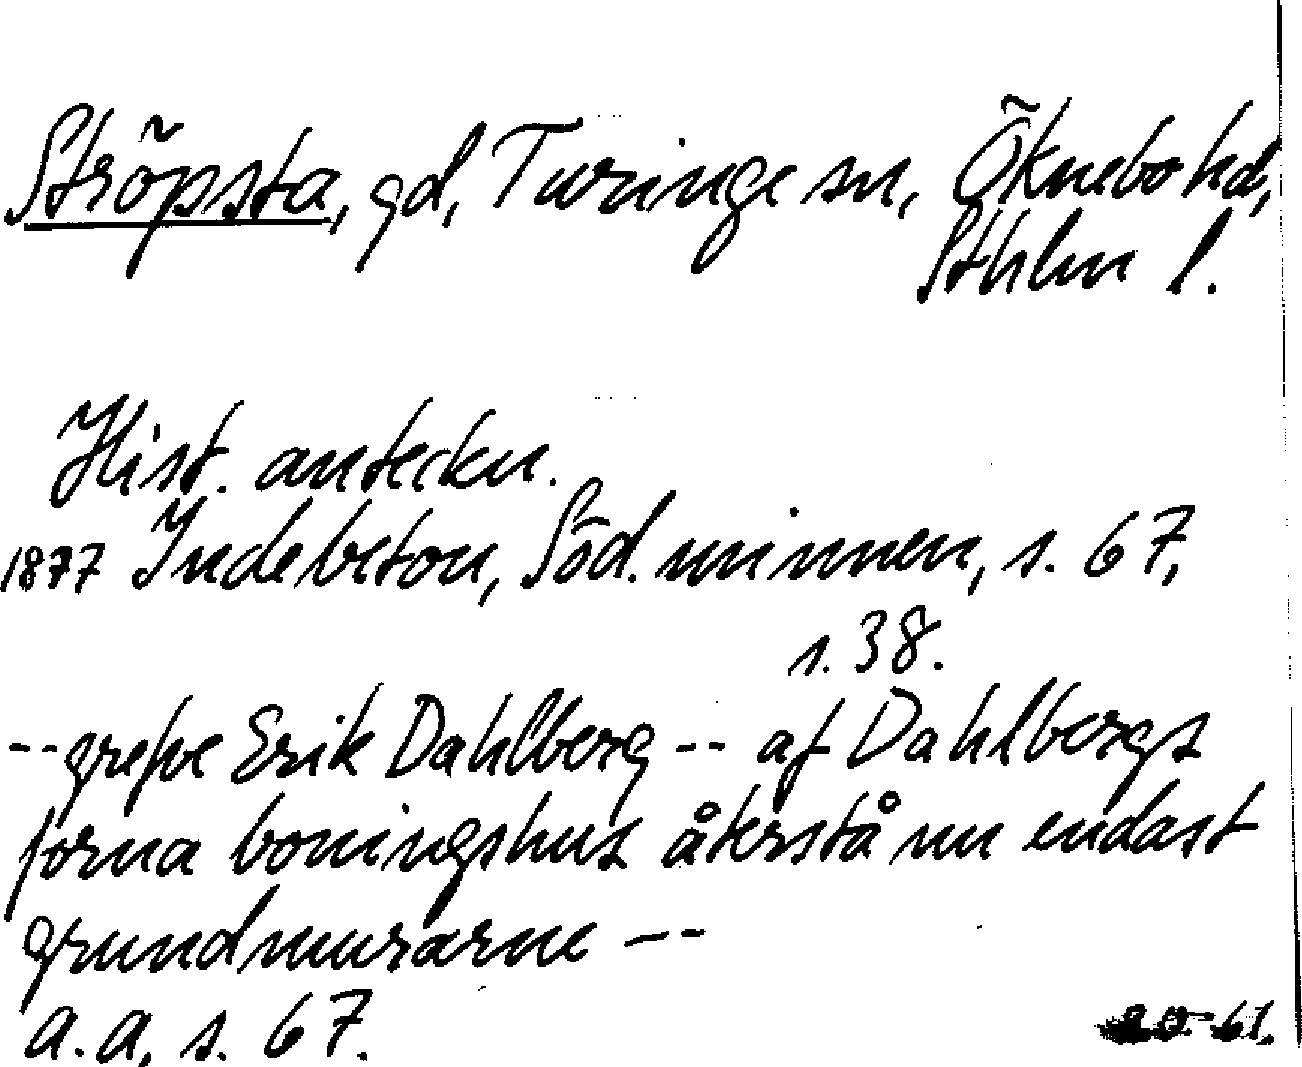 Ströpsta, gd, Turinge sn, Öknebo hd,
Sthlm l.
Hist. anteckn.
1877 Indebetou, Söd. minnen, s. 67,
s. 38.
-- grefve Erik Dahlberg -- af Dahlbergs
forna boningshus återstå nu endast
grundmurarne ---
a.a. s. 67.
61.